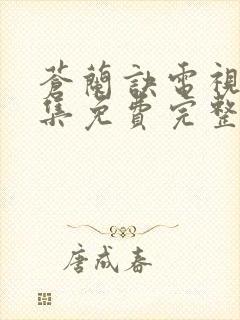 蒼蘭訣電視
集免費完整
唐成春